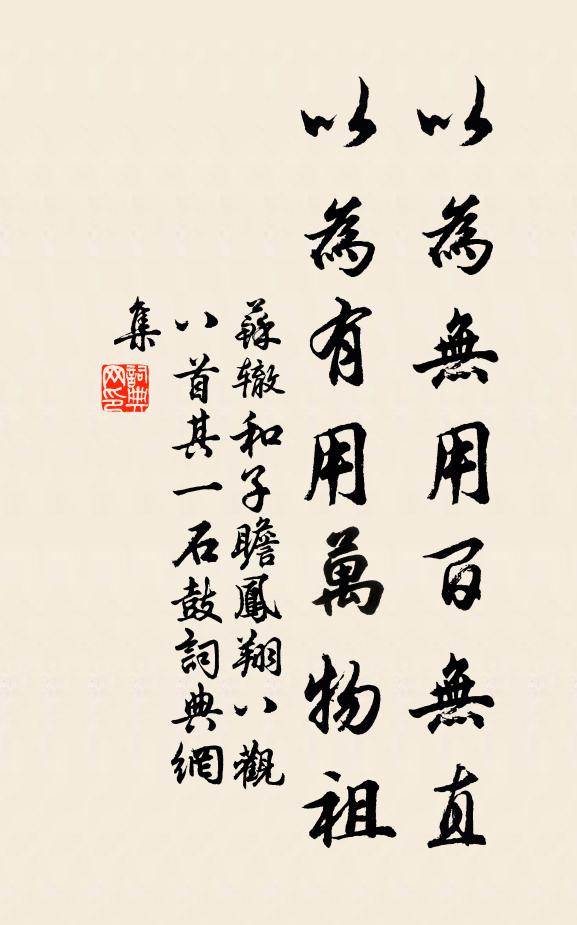 以為無用百無直
以為有用萬物祖
蘇轍和子瞻鳳翔八觀
八首其一石鼓詞典網
集
詞典
网印